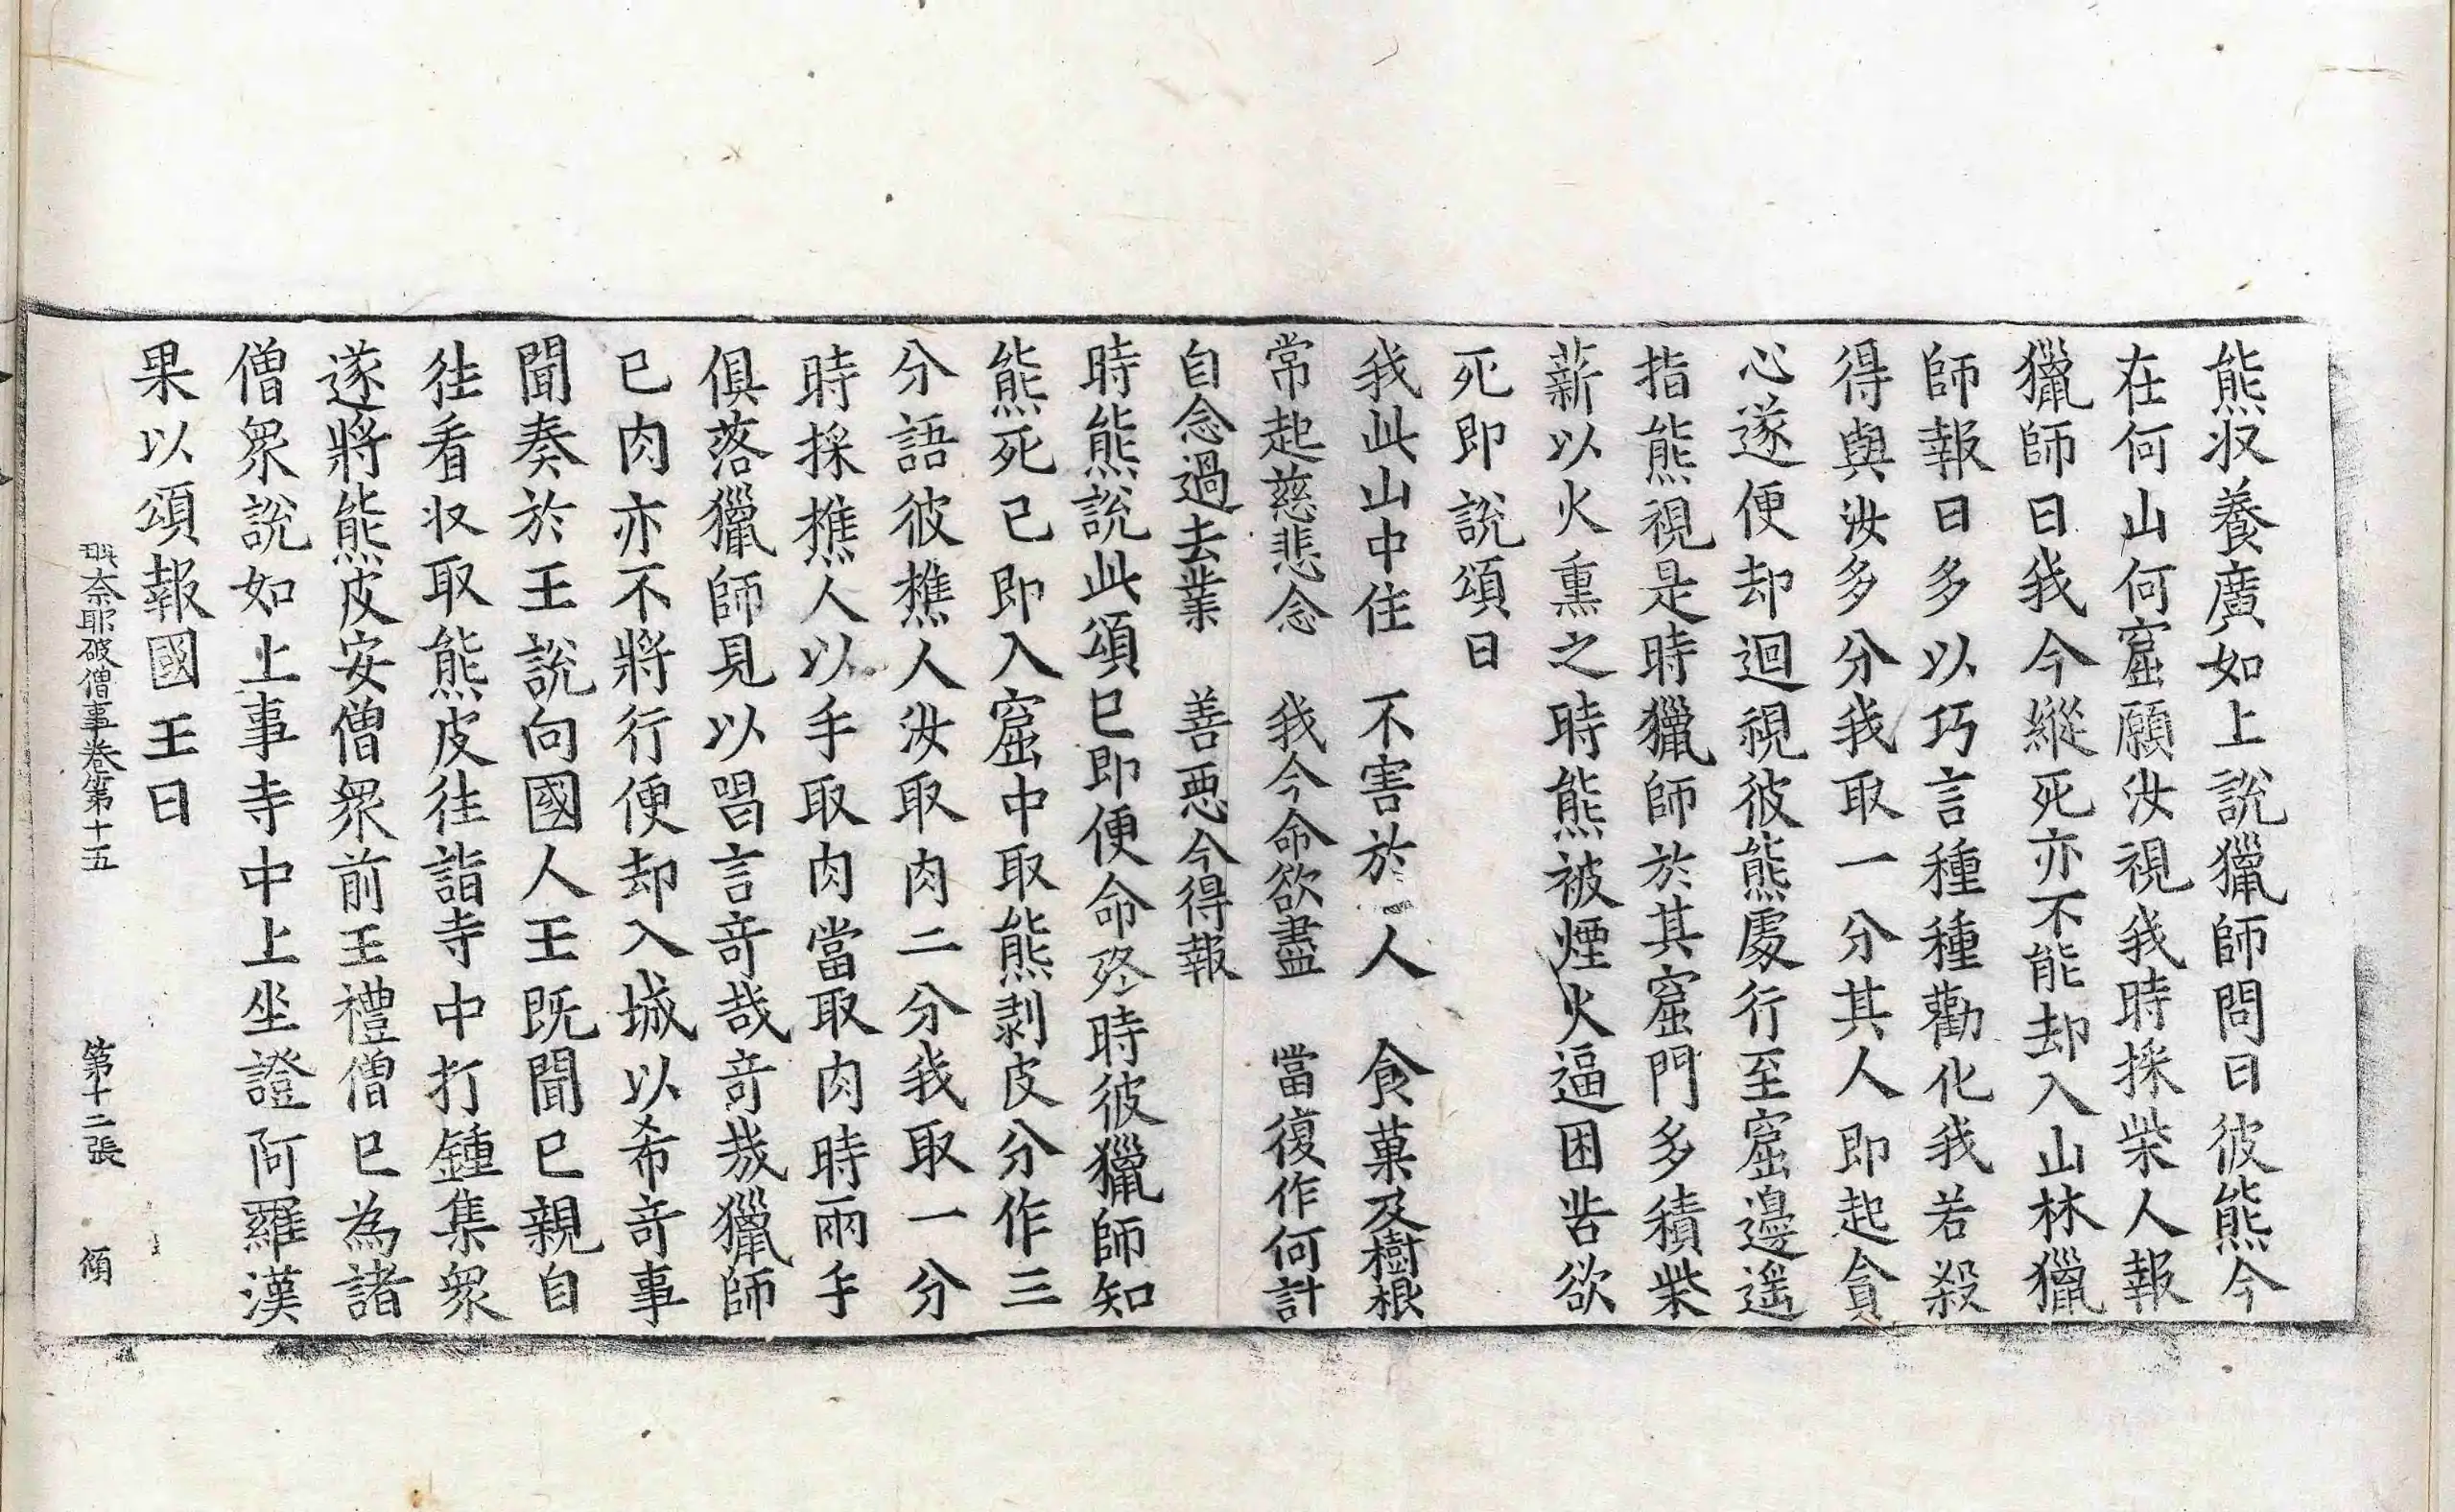 熊收養廣如上說獵師問曰彼熊今
在何山何窟願汝視我時採柴人報
獵師曰我今縱死亦不能却入山林獵
師報曰多以巧言種種勸化我若殺
得與汝多分我取一分其人即起貪
心遂便却迴視彼熊處行至窟邊遥
指熊視是時獵師於其窟門多積柴
薪以火熏之時熊被煙火逼困苦欲
死即說頌曰
我此山中住　不害於一人　食菓及樹根
常起慈悲念　我今命欲盡　當復作何計
自念過去業　善惡今得報
時熊說此頌已即便命終時彼獵師知
熊死已即入窟中取熊剥皮分作三
分語彼樵人汝取肉二分我取一分
時採樵人以手取肉當取肉時兩手
俱落獵師見以唱言奇哉奇哉獵師
已肉亦不將行便却入城以希奇事
聞奏於王說向國人王既聞已親自
往看收取熊皮往詣寺中打鍾集衆
遂將熊皮安僧衆前王禮僧已為諸
僧衆說如上事寺中上坐證阿羅漢
果以頌報國王曰
毗奈耶破僧事卷第十五　第十二張　傾